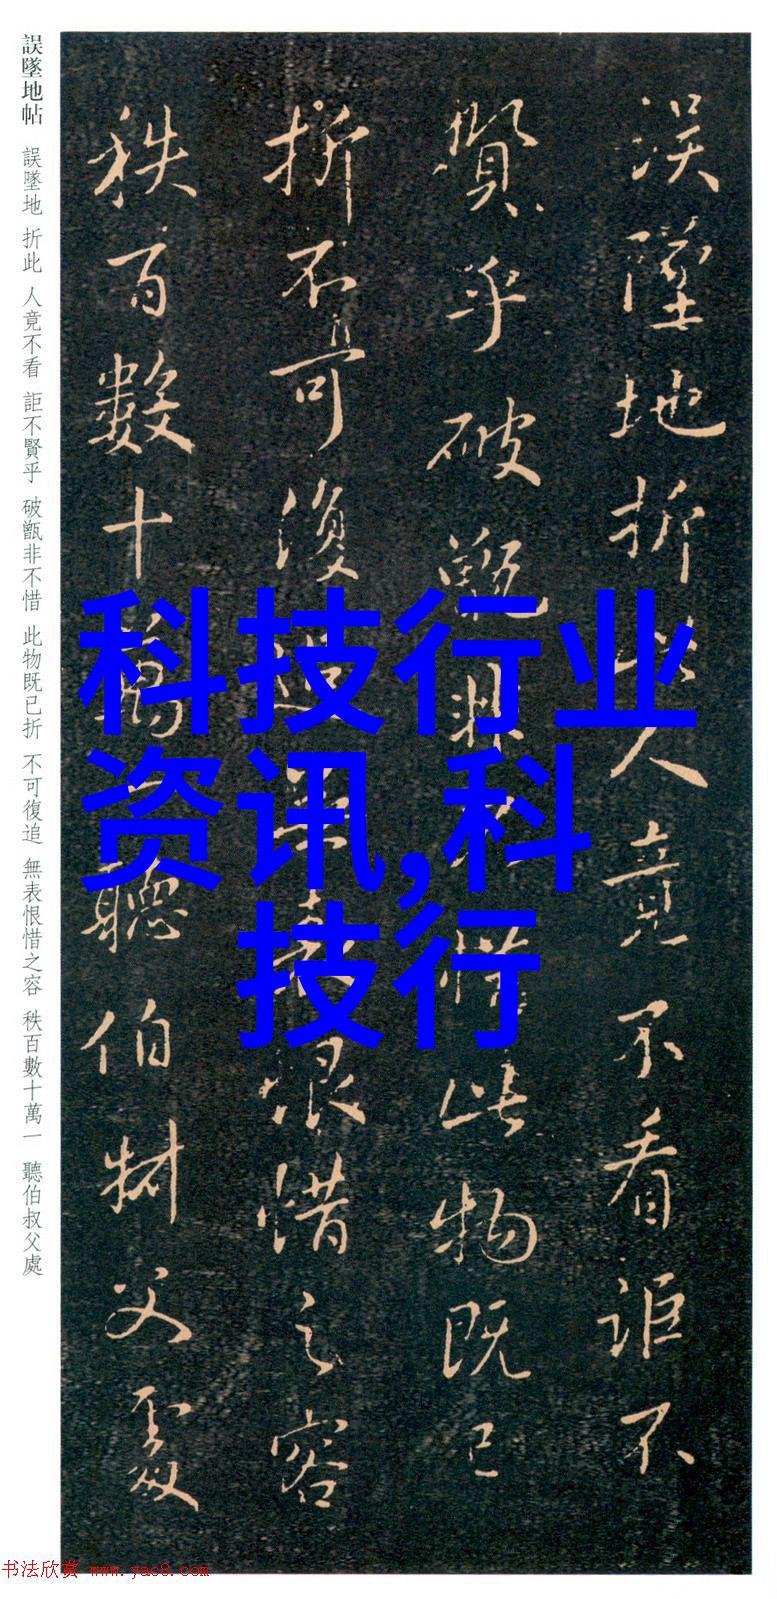 誤墜地折此人竟不看詎不
賢乎破甑非不惜此物既已
折不可復追無表恨惜之容
秩百數十萬一聽伯叔父處
誤墜地帖 誤墜地 折此 人竟不看 詎不賢乎 破甑非不惜 此物既已折 不可復追 無表恨惜之容 秩百數十萬一 聽伯叔父處
科技行业
资讯,科
技行
书法欣赏 www.yac8.com